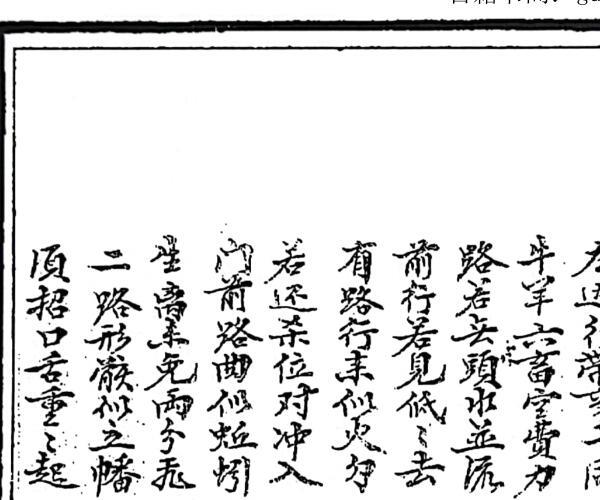 牛羊六畜空費力
路若無頭水並流
前行若見低〻去
有路行来似火字
若还杀位对冲入
门前路曲似蚯蚓
生离未免両分飛
二路形骸似之幡
須招口舌重〻起